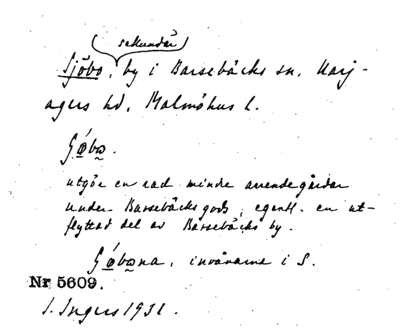 sekundär
Sjöbo, by i Barsebäcks sn. Harj-
agers hd, Malmöhus l.
Sǿbo̰.
utgör en rad mindre arrendegårdar
under Barsebäcks gods, egentl. en ut-
flyttad del av Barsebäcks by.
Sǿbo̰na, invånarna i S.
Nr 5609.
I. Ingers 1931.